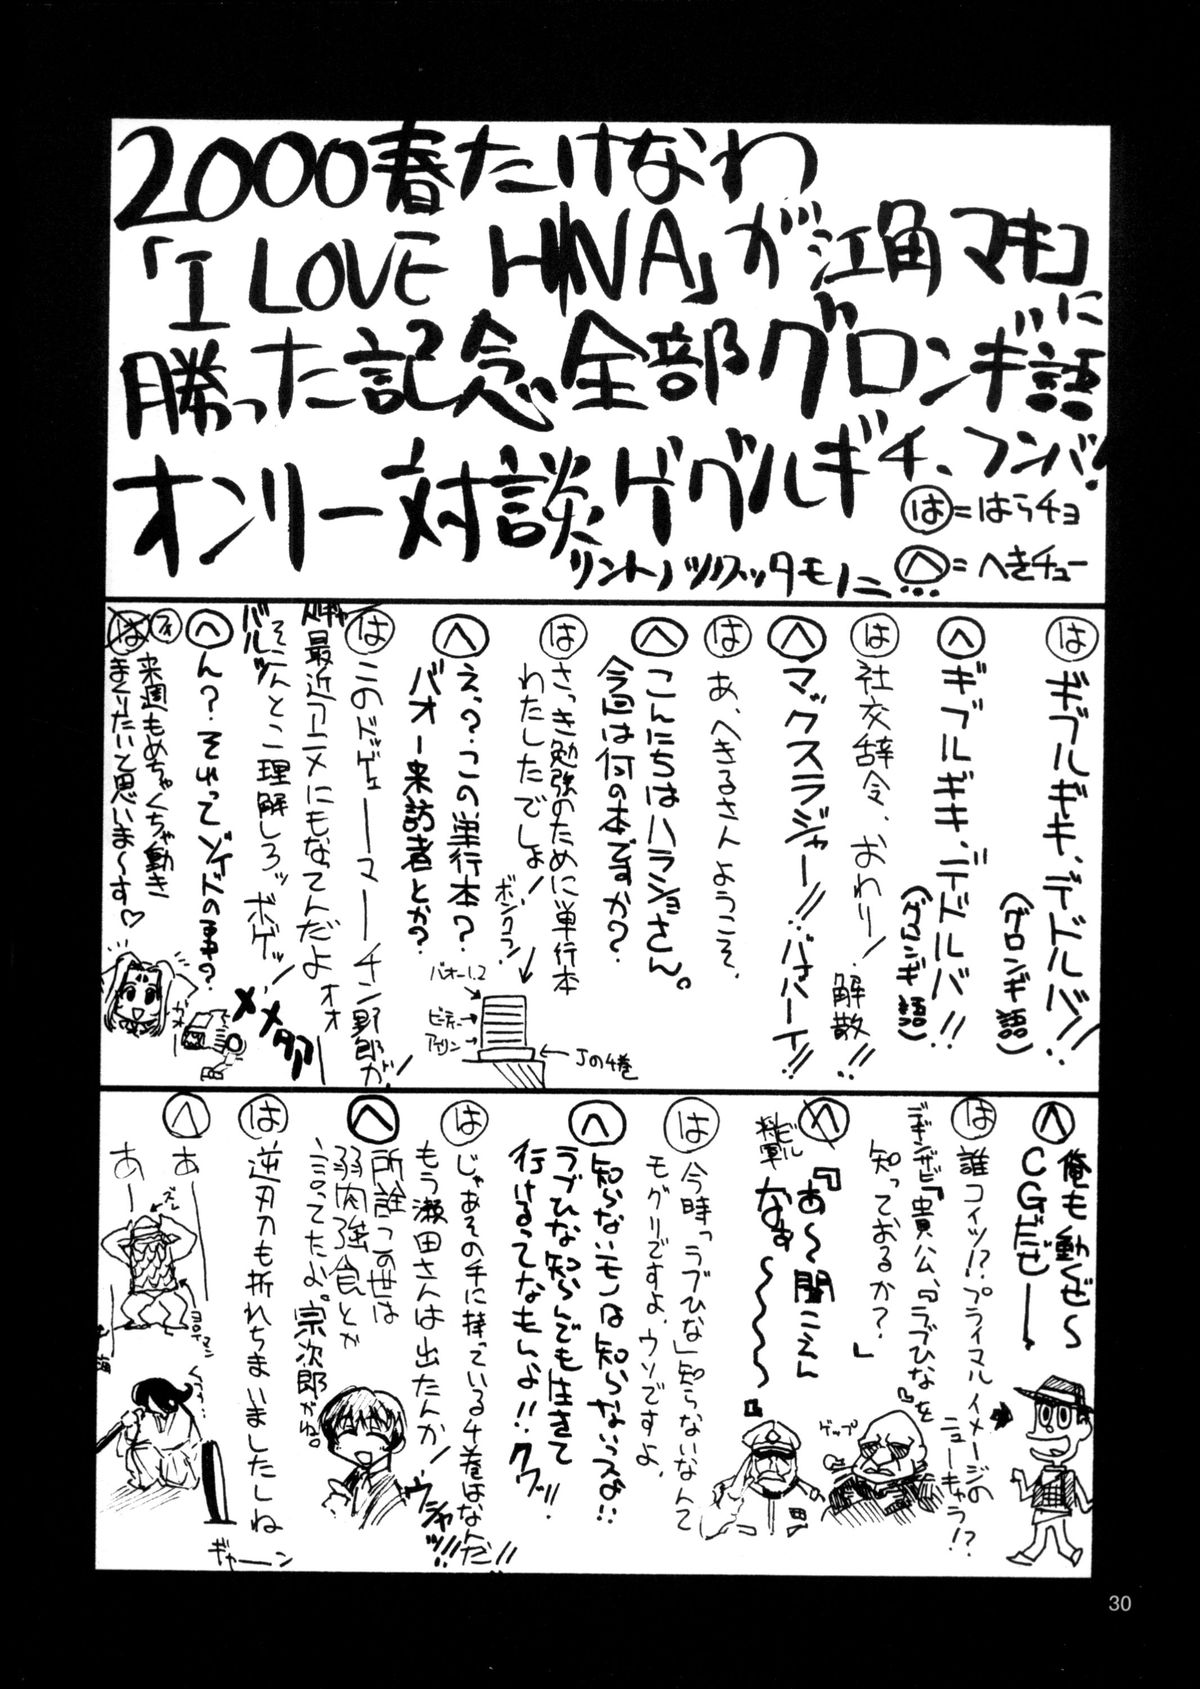 2000春たけなわ
「I LOVE HINA」が江角マキコに
勝った記念全部グロンギ語
オンリー対談ゲグルギチ、フンバ!
リントノツクッタモノニ…
は=はらチョ
へ=へきチュー
は ギブルギキ、デドルバ!
(グロンギ語)
へ ギブルギキ、デドルバ!!
(グロンギ語)
は 社交辞令、おわり! 解散!!
へ マグクスラジャー!!バオバーイ!!
は あ、へきるさんようこそ、
へ こんにちはハラショさん。
今回は何の本ですか?
は さっき勉強のために単行本
わたしたでしょ!
ボンクラ!
へ え、?この単行本?
バオー来訪者とか?
バオー1.2
ビティー
アイリン
Jの4巻
は このドゲェーーマーーチン野郎が!
最近アニメにもなてんだよオオ
そこんとこ理解しろッボゲッ!
バルッ
メメタアー
へ ん?それってゾイドの事?
フィ
は 来週もめちゃくちゃ動き
まくりたいと思いま〜す♡
へ 俺も動くぜ〜
CGだぜーー
は 誰コイツ!?プライマルイメージの
ニューキャラ!?
デギンザビ『貴公、『ラブひな』を
知っておるか?』
へ 『あ〜聞こえん
なぁ〜〜〜〜』
ビル
将軍
ゲップ
は 今時「ラブひな」知らないなんて
モグリですよ、ウソですよ、
へ 知らないモノは知らないっスよ!!
ラブひな知らんでも生きて
行けるってなもんよ!!クワッ!!
は じゃあその手に持っている4巻はなんだ!!
もう瀬田さんは出たんか!ウシャッ!!!
へ 所詮この世は
弱肉強食とか
言ってたよ。宗次郎がね。
は 逆刃刀も折れちまいましたしね
ギャーーン
くっ…
へ あーー
あーー
ズル